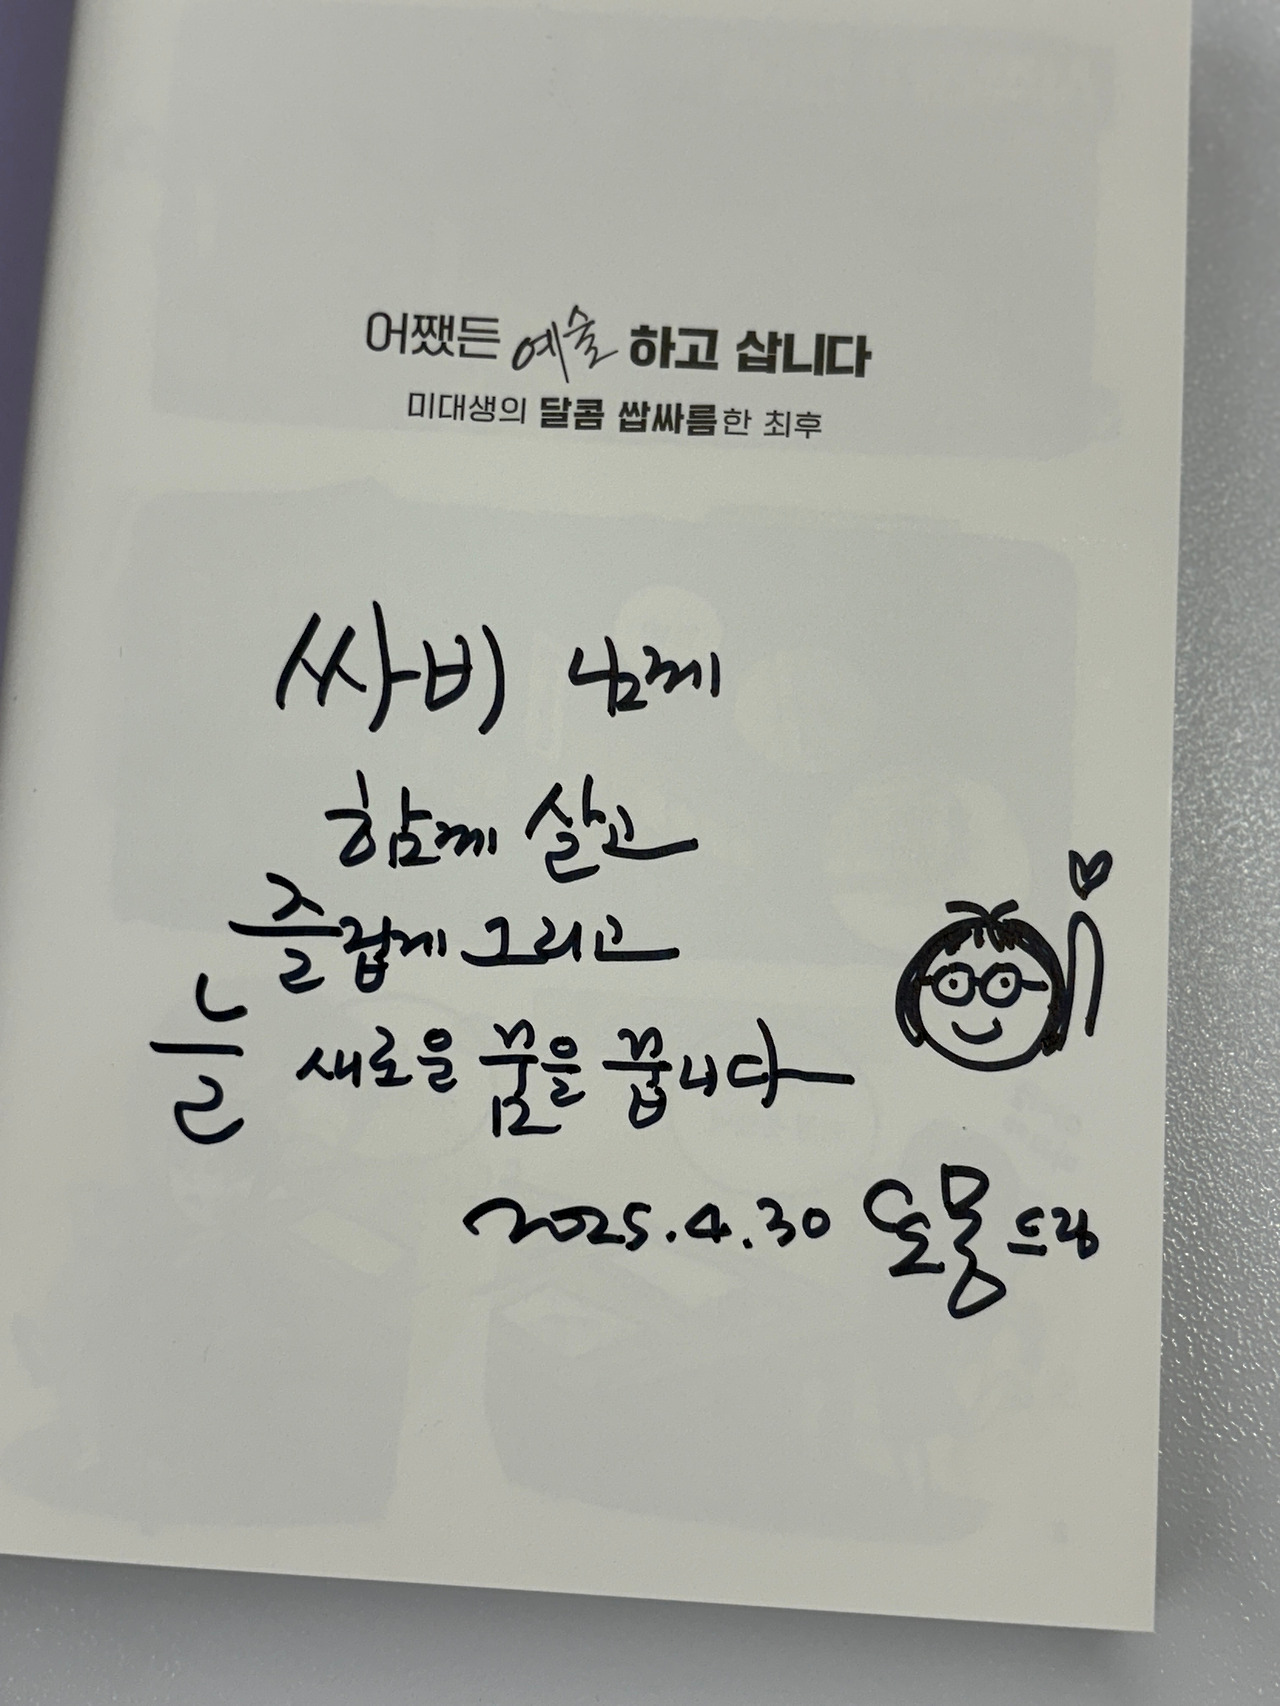 어쨌든 예술 하고 삽니다
미대생의 달콤 쌉싸름한 최후
싸비 님께
함께 살고
즐겁게 그리고
늘 새로운 꿈을 꿉니다
2025.4.30 도몽 드림